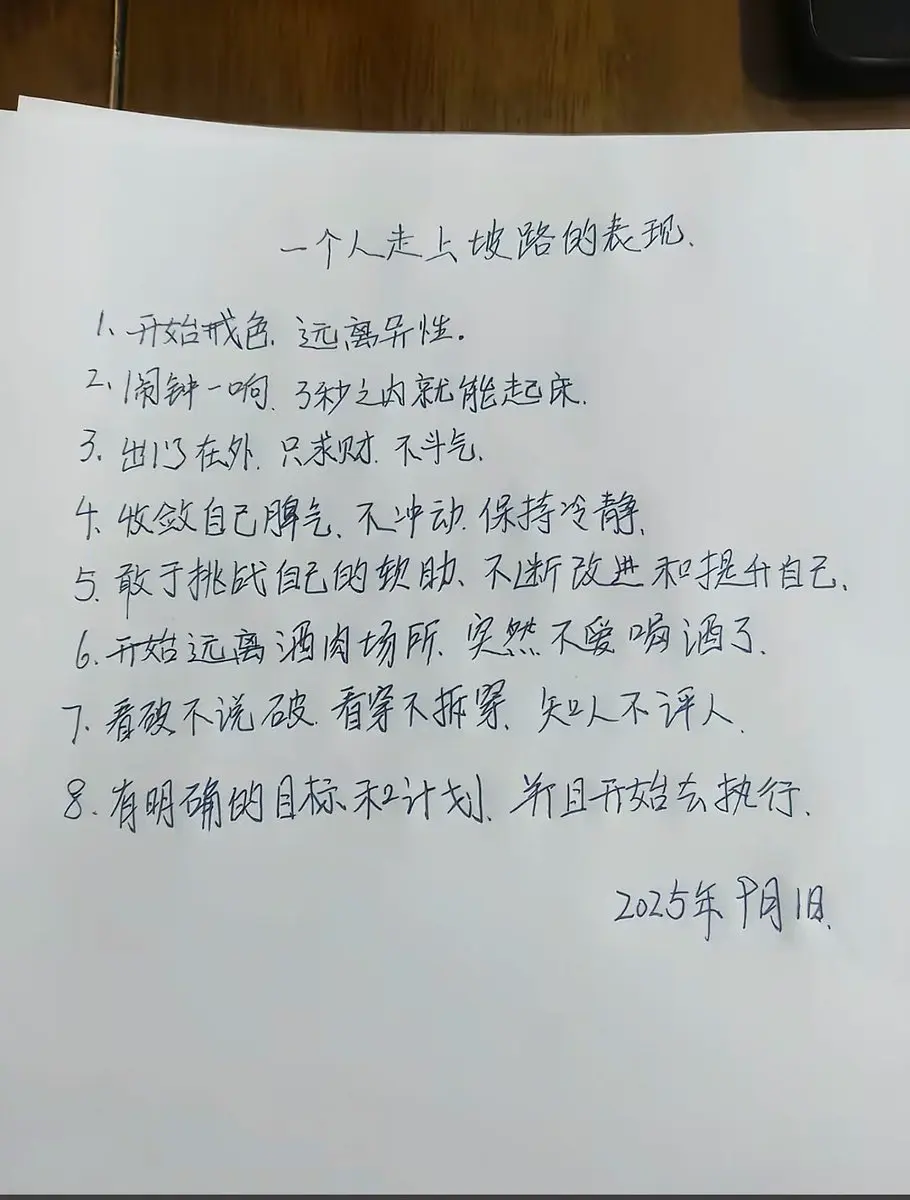 一个人走上坡路的表现.
1、开始戒色.远离异性。
2、闹钟一响.3秒之内就能起床.
3、出门在外.只求财.不斗气.
4、收敛自己脾气、不冲动.保持冷静.
5、敢于挑战自己的软肋、不断改进和提升自己.
6、开始远离酒肉场所.突然不爱喝酒了.
7、看破不说破.看穿不拆穿、知人不评人.
8、有明确的目标和计划、并且开始去执行.
2025年9月1日.